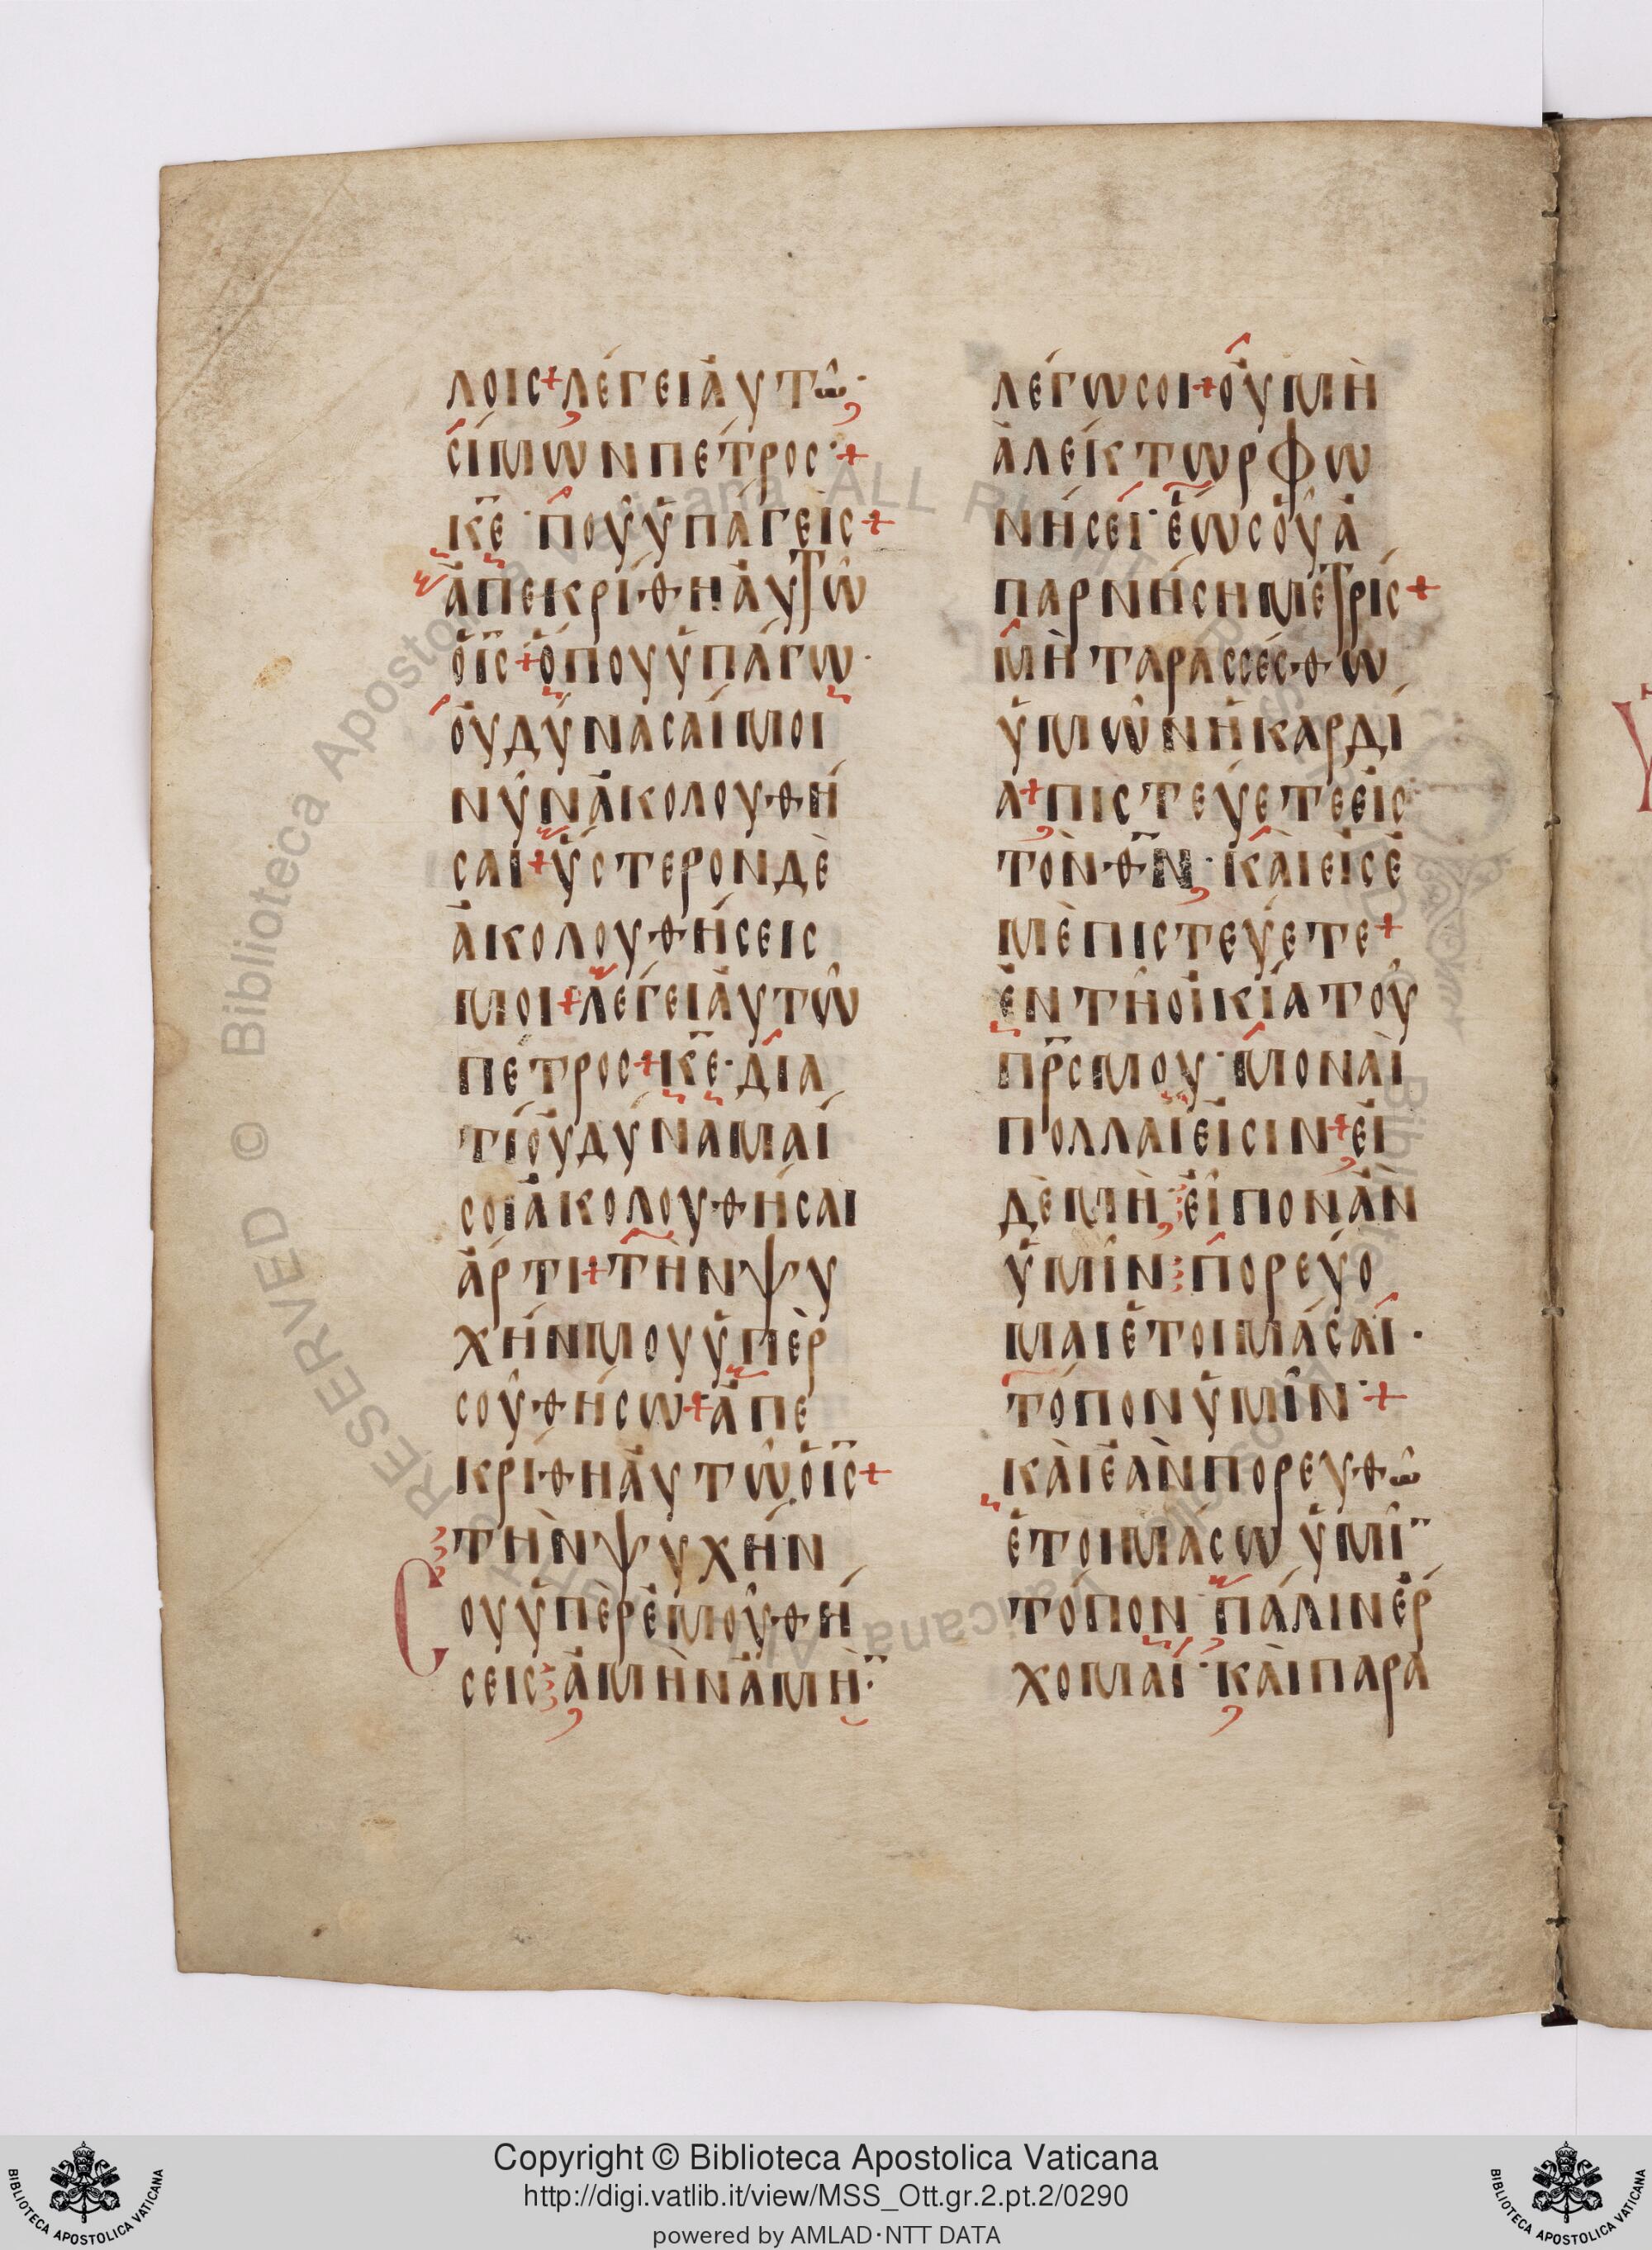 ΛΟΙC+ΛΕΓΕΙΑΥΤΩ·
CΙΜΩΝΠΕΤΡΟC·+
ΚΕ·ΠΟΥΥΠΑΓΕΙC+
ΑΠΕΚΡΙΘΗΑΥΤΩ
ΟΙC+ΟΠΟΥΥΠΑΓΩ·
ΟΥΔΥΝΑCΑΙΜΟΙ
ΝΥΝΑΚΟΛΟΥΘΗ
CΑΙ+ΥCΤΕΡΟΝΔΕ
ΑΚΟΛΟΥΘΗCΕΙC
ΜΟΙ+ΛΕΓΕΙΑΥΤΩ
ΠΕΤΡΟC+ΚΕ·ΔΙΑ
ΤΙΟΥΔΥΝΑΜΑΙ
CΟΙΑΚΟΛΟΥΘΗCΑΙ
ΑΡΤΙ+ΤΗΝΨΥ
ΧΗΝΜΟΥΥΠΕΡ
CΟΥΘΗCΩ+ΑΠΕ
ΚΡΙΘΗΑΥΤΩΟΙC+
ΤΗΝΨΥΧΗΝ
CΟΥΥΠΕΡΕΜΟΥΘΗ
CΕΙC ΑΜΗΝΑΜΗ·
ΛΕΓΩCΟΙ+ΟΥΜΗ
ΑΛΕΚΤΩΡΦΩ
ΝΗCΕΙ·ΕΩCΟΥΑ
ΠΑΡΝΗCΗΜΕΤΡΙC+
ΜΗΤΑΡΑCCΕCΘΩ
ΥΜΩΝΗΚΑΡΔΙ
Α+ΠΙCΤΕΥΕΤΕΕΙC
ΤΟΝΘΝ·ΚΑΙΕΙCΕ
ΜΕΠΙCΤΕΥΕΤΕ+
ΕΝΤΗΟΙΚΙΑΤΟΥ
ΠΡCΜΟΥ·ΜΟΝΑΙ
ΠΟΛΛΑΙΕΙCΙΝ+ΕΙ
ΔΕΜΗ ΕΙΠΟΝΑΝ
ΥΜΙΝ ΠΟΡΕΥΟ
ΜΑΙΕΤΟΙΜΑCΑΙ·
ΤΟΠΟΝΥΜΙΝ·+
ΚΑΙΕΑΝΠΟΡΕΥΘΩ
ΕΤΟΙΜΑCΩΥΜΙ
ΤΟΠΟΝ ΠΑΛΙΝΕΡ
ΧΟΜΑΙ·ΚΑΙΠΑΡΑ
Copyright © Biblioteca Apostolica Vaticana
http://digi.vatlib.it/view/MSS_Ott.gr.2.pt.2/0290
powered by AMLAD·NTT DATA
BIBLIOTECA APOSTOLICA VATICANA
BIBLIOTECA APOSTOLICA VATICANA